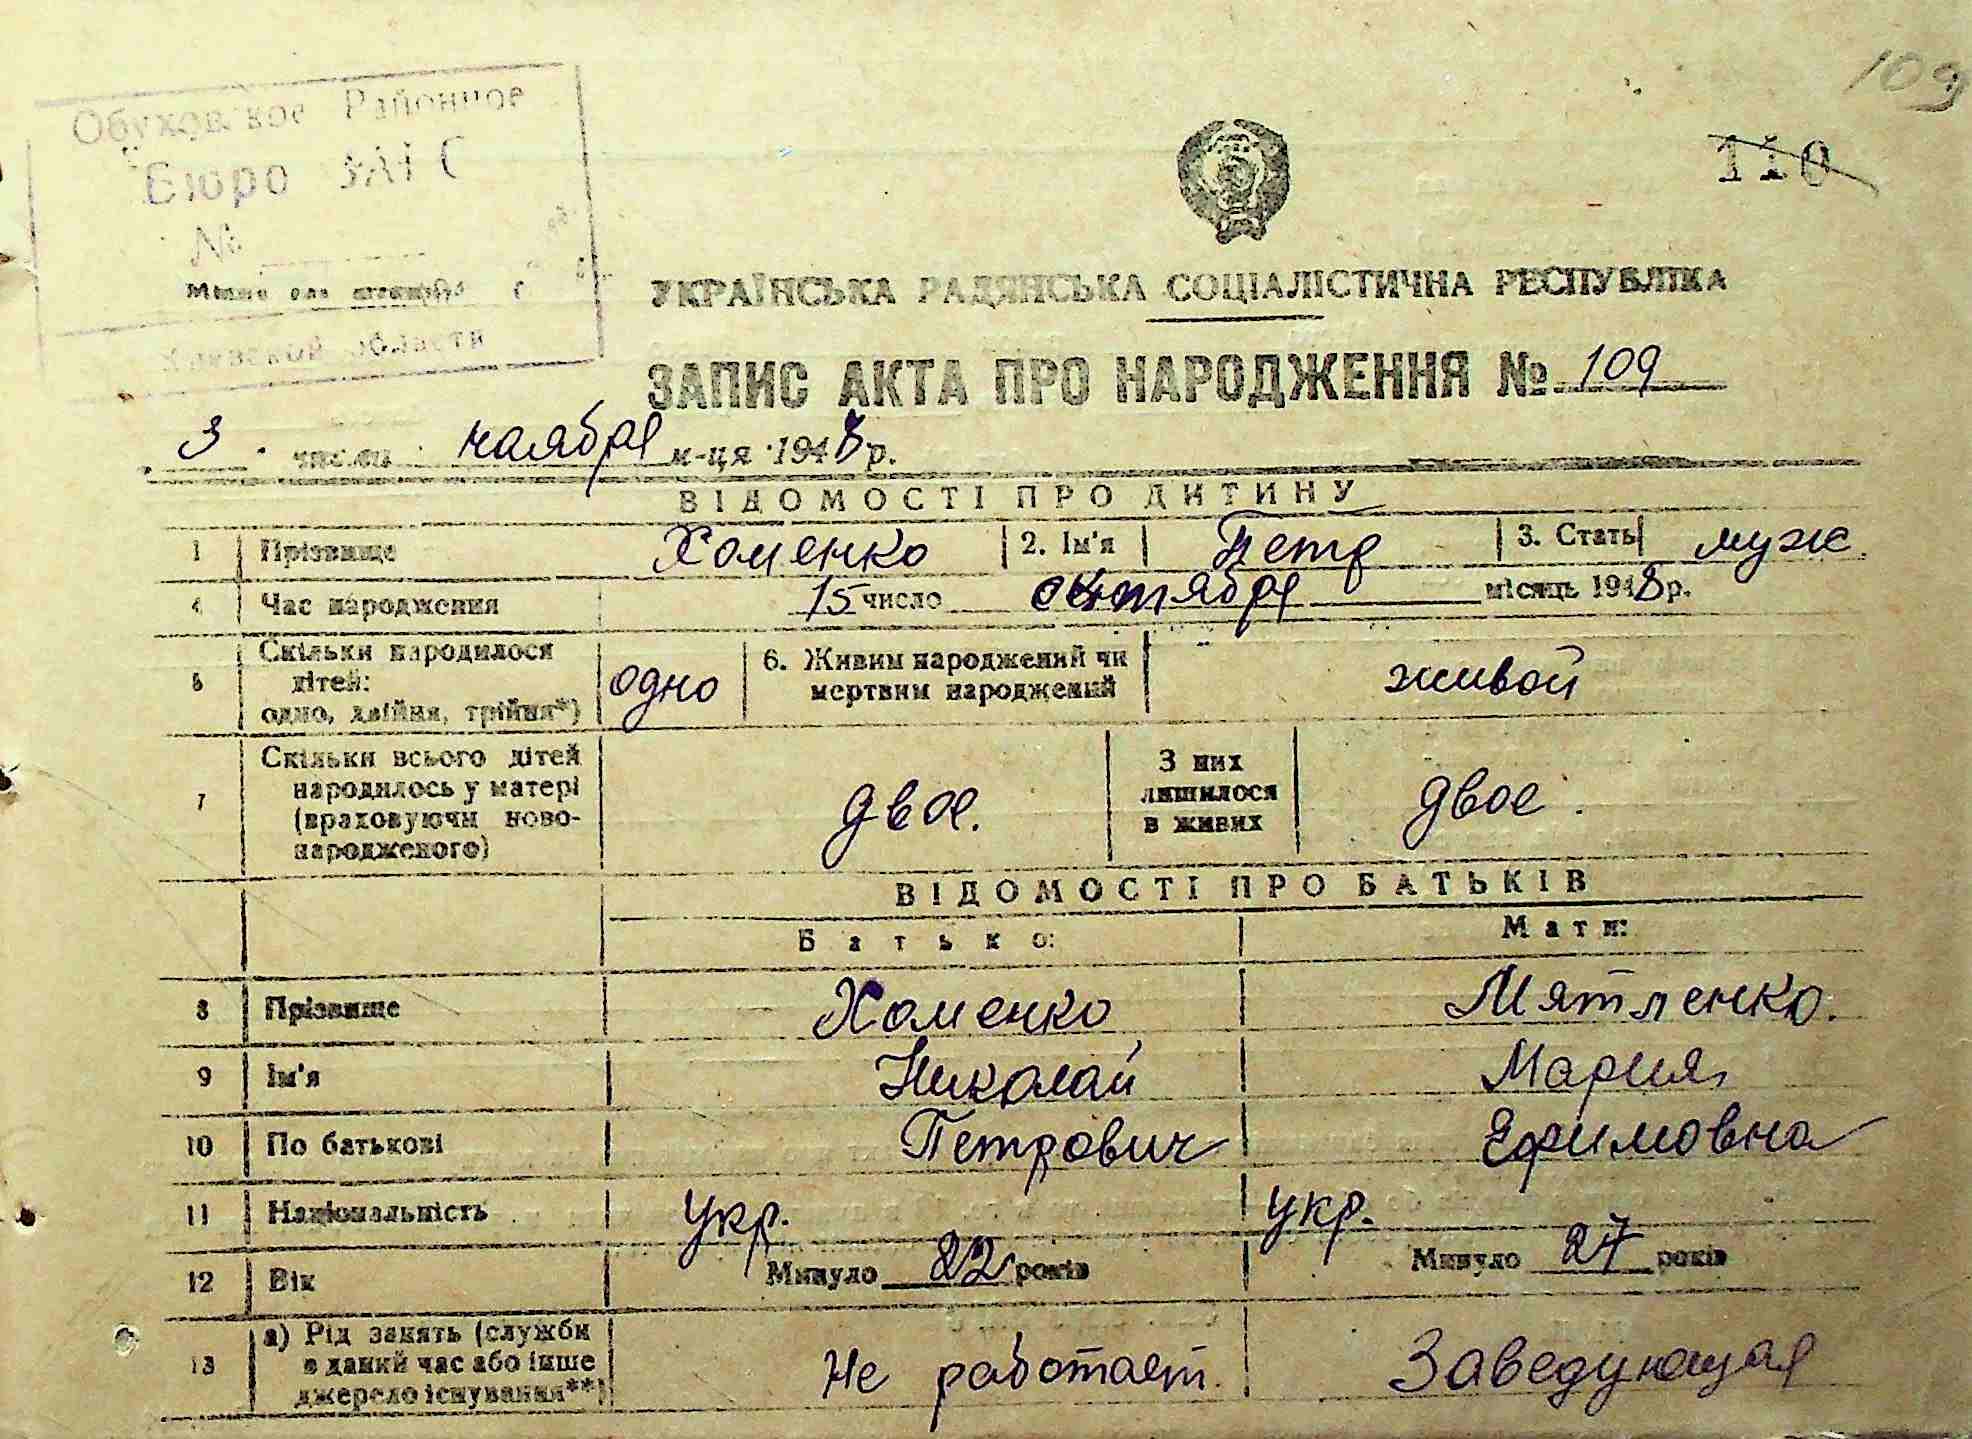 109
110
Обуховское Районное
Бюро ЗАГС
№
области
УКРАЇНСЬКА РАДЯНСЬКА СОЦІАЛІСТИЧНА РЕСПУБЛІКА
ЗАПИС АКТА ПРО НАРОДЖЕННЯ № 109
3 числа ноября м-ця 1948 р.
ВІДОМОСТІ ПРО ДИТИНУ
1 Прізвище Хоменко 2. Ім'я Петр 3. Стать муж.
4 Час народження 15 число октября місяць 1948 р.
5 Скільки народилося
дітей:
одно, двійня, трійня*) одно 6. Живим народжений чи
мертвим народжений живой
7 Скільки всього дітей
народилось у матері
(враховуючи ново-
народженого) двое. З них
лишилося
в живих двое.
ВІДОМОСТІ ПРО БАТЬКІВ
Батько: Мати:
8 Прізвище Хоменко Мятленко.
9 Ім'я Николай Мария
10 По батькові Петрович Ефимовна
11 Національність укр. укр.
12 Вік Минуло 22 років Минуло 27 років
13 а) Рід занять (служби
в даний час або інше
джерело існування**) Не работает. Заведующая